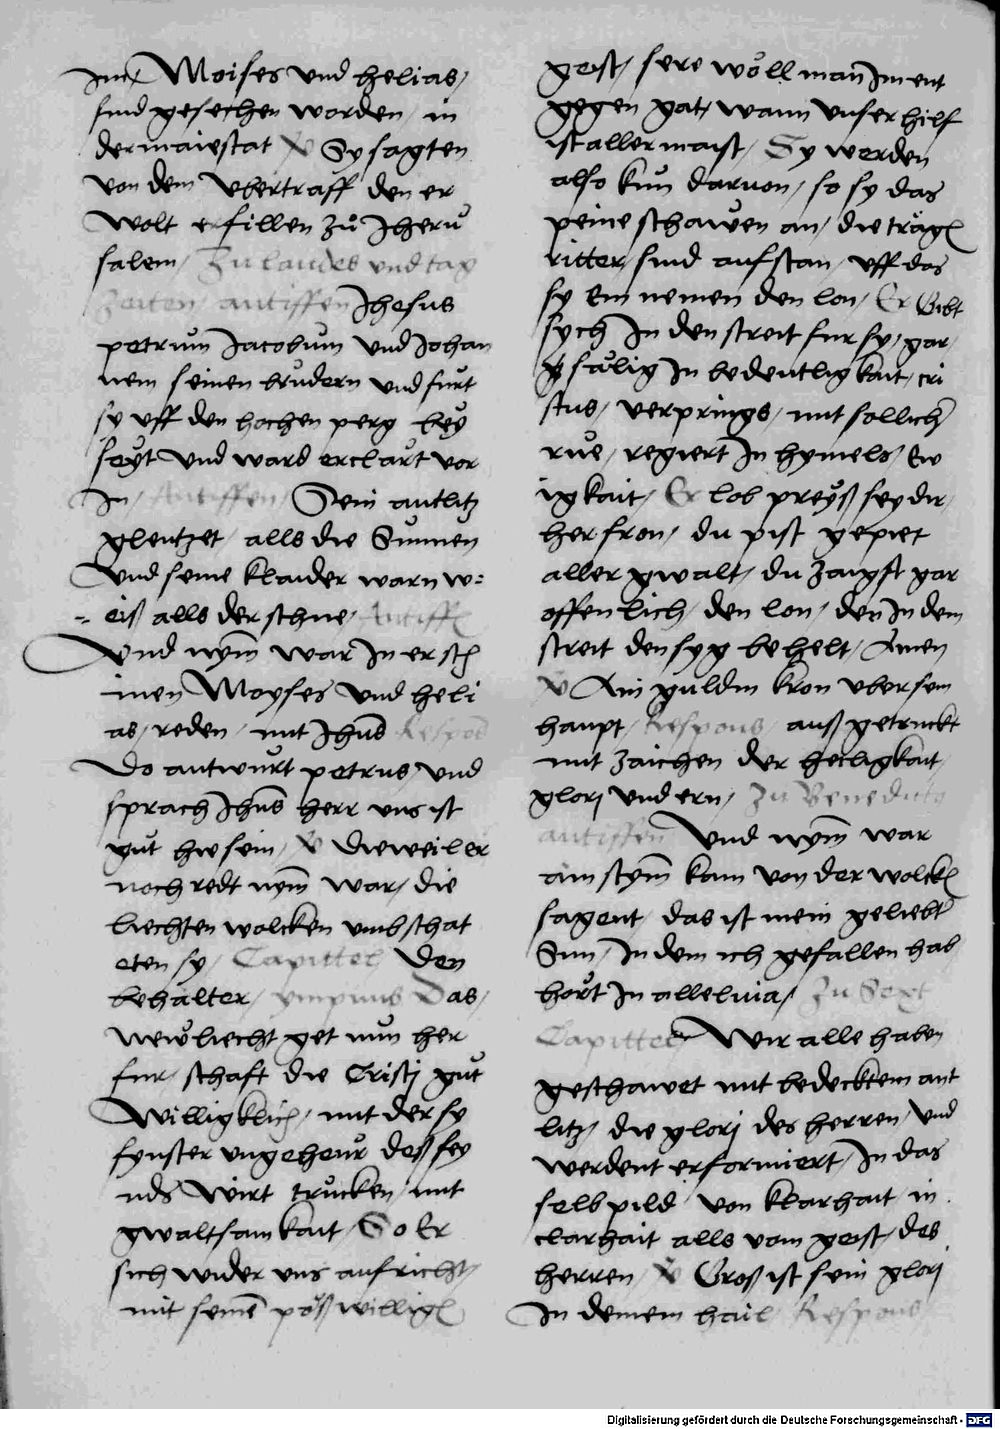 im / Moises und helias /
sind gesechen worden / in
der maiestat V Sy sagten
von dem ubertraff den er
wolt erfillen zů Jheru
salem / Zu laudes und tag
zeiten / antiffen Jhesus
petrum Jacobum und Johan
nem seinen brudern und furt
sy uff den hochen perg bey
seyt und ward erclart vor
In / Antiffen / Sein antlitz
glentzet / alls die Sunnen
Und seine klaider warn w=
= eiß alls der schne / Antiff
Und nym war In er sch
inen Moyses und heli
as / reden / mit Jhus Respons
Do antwurt petrus / und
sprach Jhus herr uns ist
gut hie sein / V dieweil er
noch redt nym war / die
liechten wolcken umbschat
eten sy / Capittel Den
behalter / ympnus Das /
new liecht get nun her
fur / schaft die Cristj gut
Willigklich / mit der sy
fynster ungeheur deß fey
nds Wirt trucken / mit
gwaltsamkait / So Er
sich wider uns aufricht /
mit seinem pöß willig
geist / sere wöll man Im ent
gegen gat / wann unser hilf
ist aller maist / Sy werden
also kun daruon / so sy das
peine schawen an / die träg
ritter / sind aufstan / uff das
sy Ein nemen den lon / Er Gibt
sych In den streit fur sy / gar /
sälig In bedentligkait / cri
stus / verprings / mit sollich
rue / regiert In hymels / Ew
igkait / Er lob preyß sey dir /
her fron / du pist gepiet
aller gwalt / du zaigst gar
offenlich / den lon / den In dem
streit den syg behelt / Amen
V Ain guldin kron uber sein
haupt / Respons / auß getruckt
mit zaichen der heiligkait /
glorj und ern / Zu Benedictus
antiffen Und nym war
ain stym kam von der wolck
sagent / das ist mein geliebt
Sun / In dem ich gefallen hab
hört In alleluia / Zu Sext
Capittel Wir alle haben
geschawet mit bedecktem ant
litz / die glorj des herren / und
werdent erformiert / In das
selb pild / von klarhait in
clarhait alls vom geist / des
herren / V Groß ist sein glorj
In deinem hail / Respons
Digitalisierung gefördert durch die Deutsche Forschungsgemeinschaft - DFG